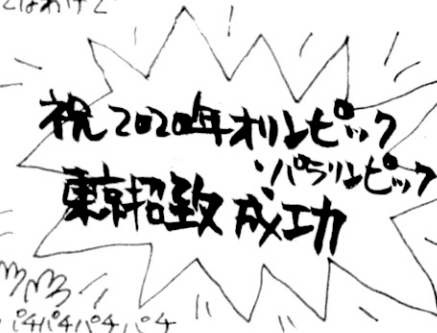 とはわけで
祝2020年オリンピック
パラリンピック
東京招致成功
パチパチパチパチ